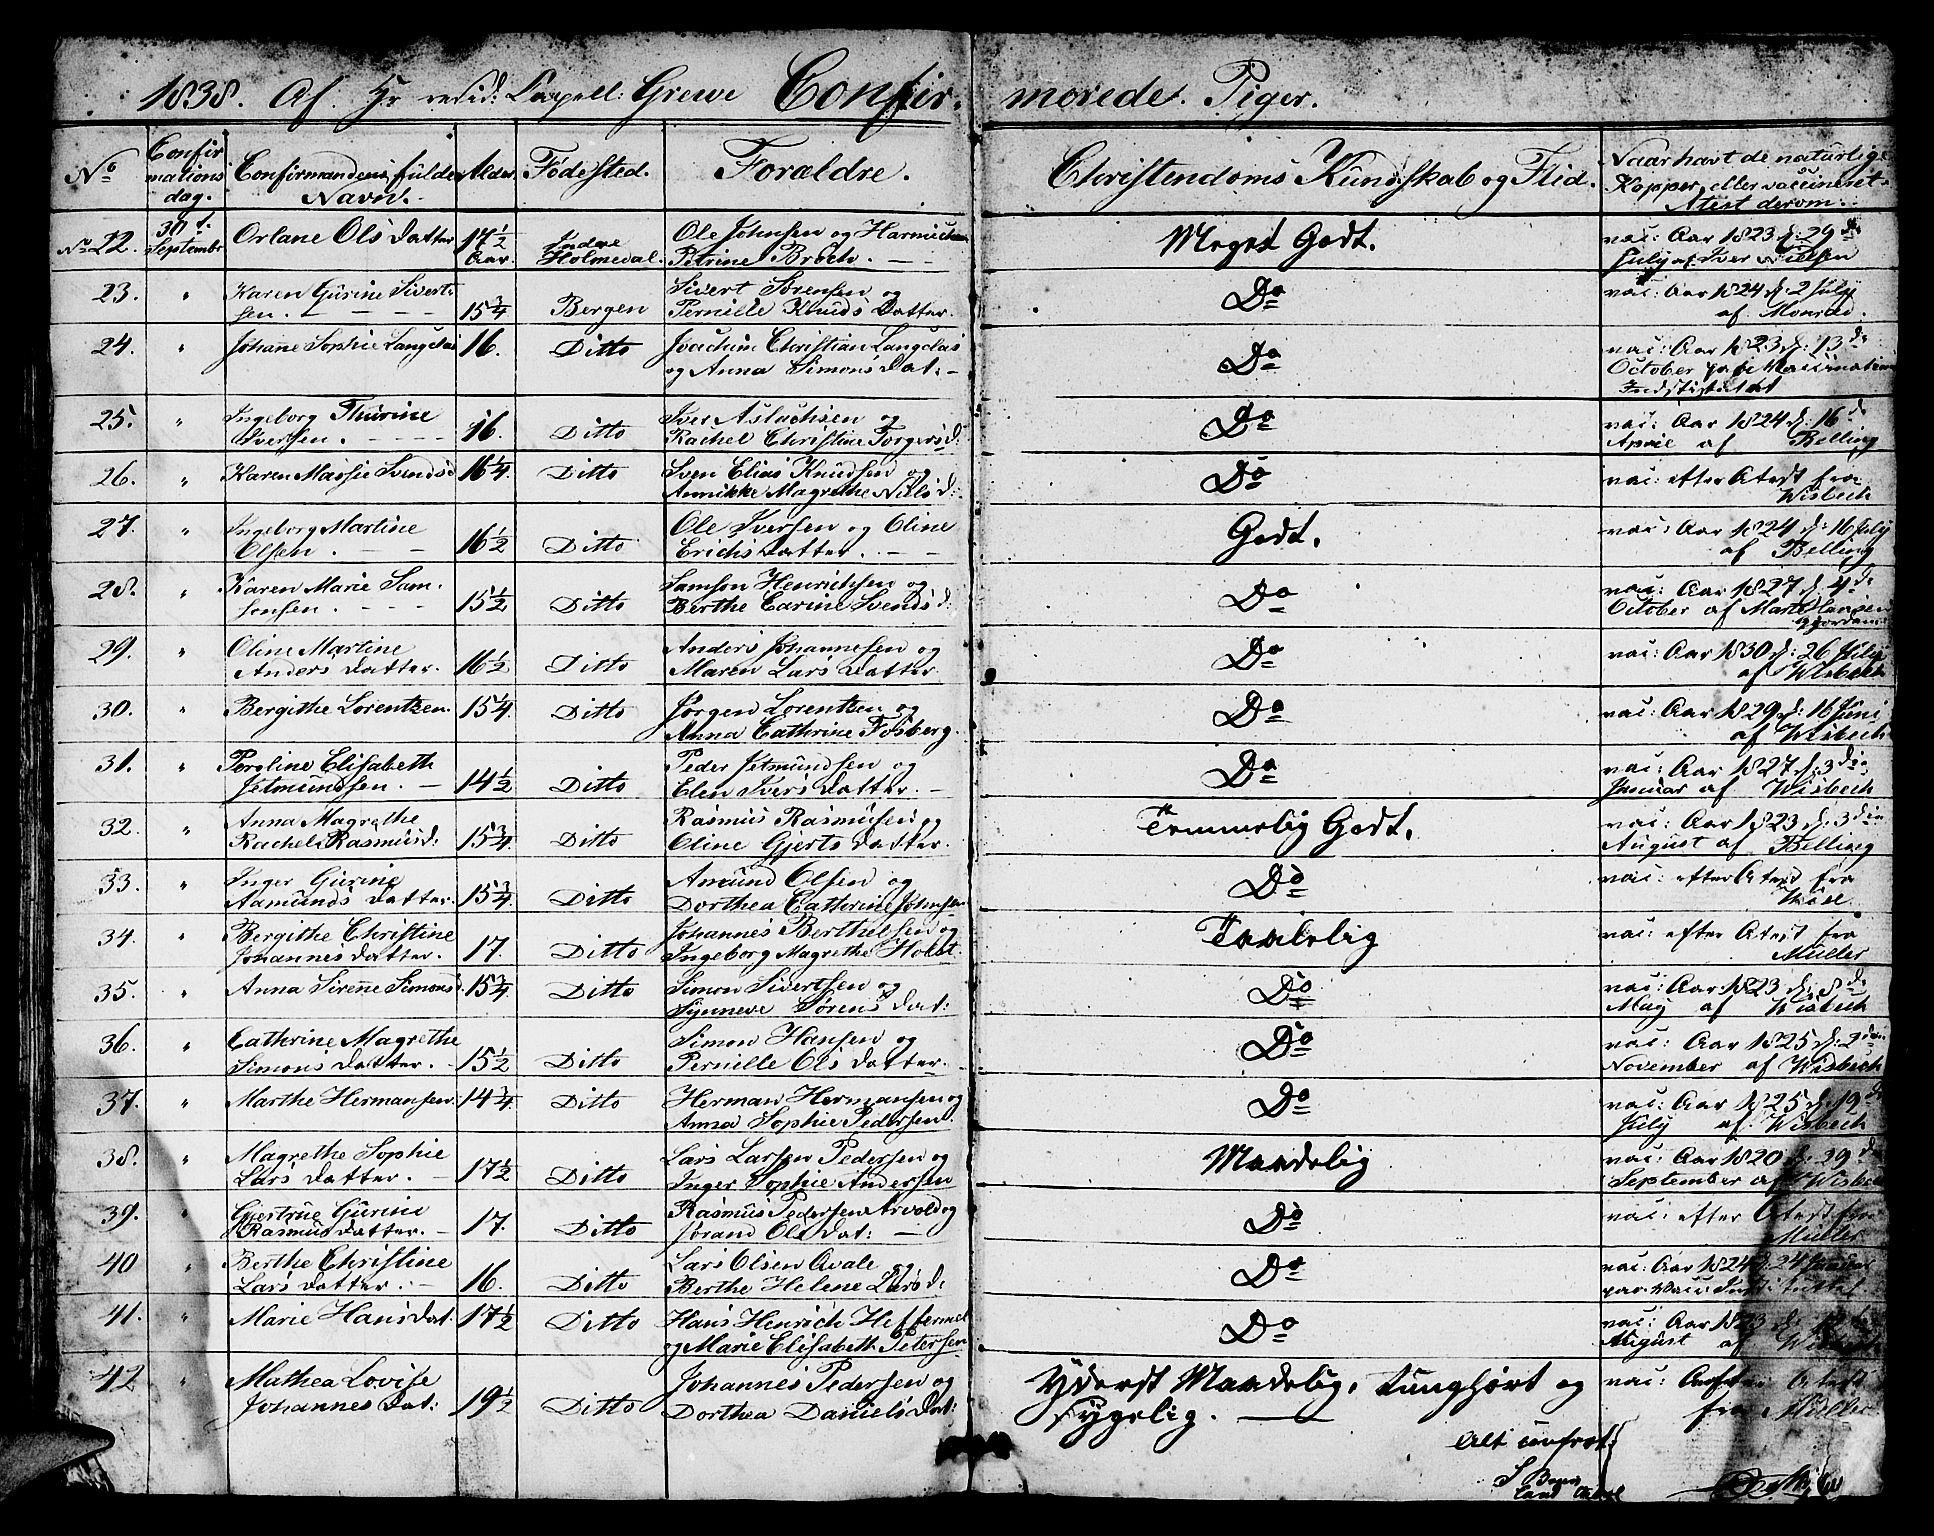 1838. Af. Hr resid: Capell: Grewe Confir- morede. Piger.
No Confirmations dag. Confirmandens fulde Navn. Alder Fødested. Forældre. Christendoms Kundskab og Flid. Naar havt de naturlige Kopper, eller vaccineret. Atest derom.
No 22. 30t. September Orlane Olsdatter 17 1/2 Aar. Indre Holmedal. Ole Johnsen og
Petrine Broch. Meget Godt. vac: Aar 1823 d: 29de
July af Iver Nielsen
23. " Karen Gurine Sivert-
sen. 15 3/4 Bergen Sivert Sørensen og
Pernille Knuds Datter. Do vac: Aar 1824 d: 2 July
af Monrad.
24. " Johanne Sophie Langclas 16. Ditto Joachim Christian Langclas
og Anna Simons Dat: Do vac: Aar 1823 d: 13de
October paa Vaccinations
Indstitutet
25. " Ingeborg Thurine
Iversen. 16. Ditto Iver Aslachsen og
Rachel Christine Torgersd: Do vac: Aar 1824 d: 16de
April af Belling
26. " Karen Massie Svendsd 16 1/4. Ditto Sven Elias Knudsen og
Annikke Magrethe Nilsd: Do vac: efter Atest fra
Wisbech
27. " Ingeborg Martine
Olsen. 16 1/2 Ditto Ole Iversen og Oline
Erichsdatter. Godt. vac: Aar 1824 d: 16 July
af Belling
28. " Karen Marie Sam-
sonsen. 15 1/2 Ditto Samson Henrichsen og
Berthe Carine Svendsd: Do vac: Aar 1827 d: 4de
October af
29. " Oline Martine
Anders datter. 16 1/2 Ditto Anders Johannesen og
Maren Lars Datter Do vac: Aar 1830 d: 26 July
af Wisbech
30. " Bergithe Lorentzen. 15 1/4. Ditto Jørgen Lorentzen og
Anna Cathrine Fosberg. Do vac: Aar 1829 d: 16 Juni
af Wisbech
31. " Peroline Elisabeth
Jetmundsen. 14 1/2 Ditto Peder Jetmundsen og
Elen Ivers datter. Do vac: Aar 1827 d: 3die
Januar af Wisbech
32. " Anna Magrethe
Rachel Rasmusd: 15 3/4 Ditto Rasmus Rasmusen og
Oline Gjerts datter. Temmelig Godt. vac: Aar 1823 d: 3die
August af Belling
33. " Inger Gurine
Aamunds datter. 15 3/4 Ditto Amund Olsen og
Dorthea Catherine Johnsen Do vac: efter Atest fra
34. " Bergithe Christine
Johannes datter. 17. Ditto Johannes Berthelsen og
Ingeborg Magrethe Holst. Taalelig vac: efter Atest fra
Müller
35. " Anna Sirene Simons 15 3/4. Ditto Simon Sivertsen og
Synneve Sørens dat: Do vac: Aar 1823 d: 8de
May af Wisbech
36. " Cathrine Magrethe
Simons datter. 15 1/2 Ditto Simon Hansen og
Pernille Ols datter. Do vac: Aar 1825 d: 2den
November af Wisbech
37. " Marthe Hermansen. 14 3/4. Ditto Herman Hermansen og
Anna Sophie Pedersen. Do vac: Aar 1825 d: 19de
July af Wisbech
38. " Magrethe Sophie
Lars datter. 17 1/2 Ditto Lars Larsen Pedersen og
Inger Sophie Andersen Maadelig vac: Aar 1820 d: 29de
September af Wisbech
39. " Giertrue Gurine
Rasmusdatter. 17. Ditto Rasmus Pedersen Arvold og
Jorand Ole Dat: Do vac: efter Atest fra
Müller
40 " Berthe Christine
Lars datter. 16. Ditto Lars Olsen Avale og
Berthe Helene Larsd: Do vac: Aar 1824 d: 24 Januar
paa Vacc: Institutet.
41. " Marie Hansdat: 17 1/2 Ditto Hans Henrich Heffermel
og Marie Elisabeth Petersen Do vac: Aar 1823
August af Wisbech
42 " Mathea Lovise
Johannes Dat: 19 1/2 Ditto Johannes Pedersen og
Dorthea Daniels Dat: Yderst Maadelig, tunghørt og
sygelig. vac: efter Atest
fra Müller